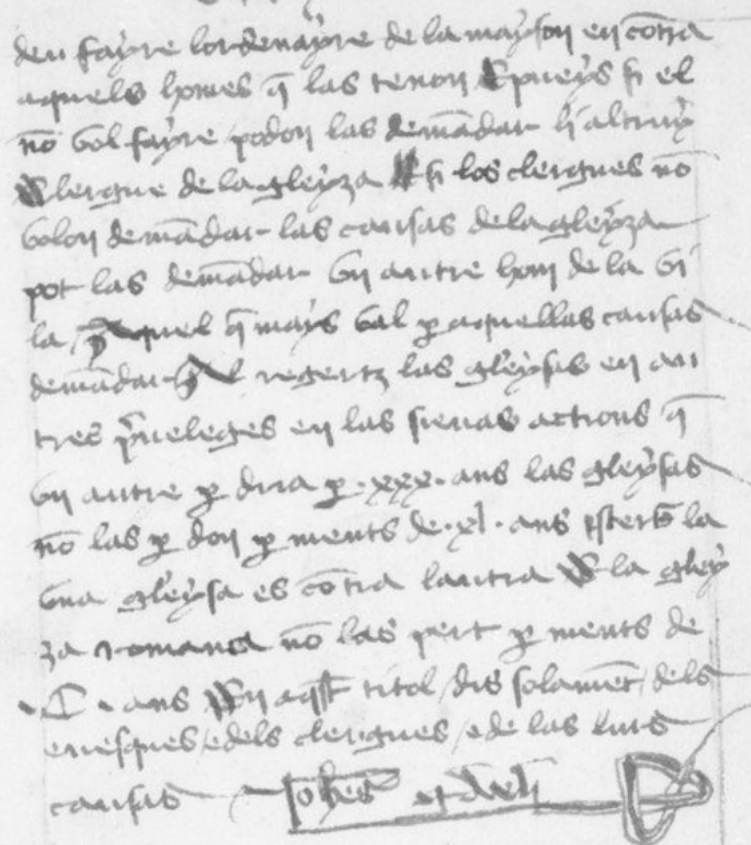 deu fayre lordenayre de la mayson en cōtra
aquels homes q̄ las tenon E pueys si el
nō vol fayre podon las demādar li altruy
Clergue de la gleyza E si los clergues nō
volon demādar las causas de la gleyza
pot las demādar vn autre hom de la vi
la, aquel q̄ mays val p̱ aquellas causas
demādar regertz las gleysas en au
tres p̄ueleges en las sieuas actions q̄
vn autre p̱ dria p̱ .xxx. ans las gleysas
nō las p̱ don p̱ ments de .xl. ans la
vna gleysa es cōtra lautra E la gley
za romana nō las pert p̱ ments de
.C. ans En aq̄st titol, dis solamēt, dels
euesques, e dels clergues, e de las lurs
causas